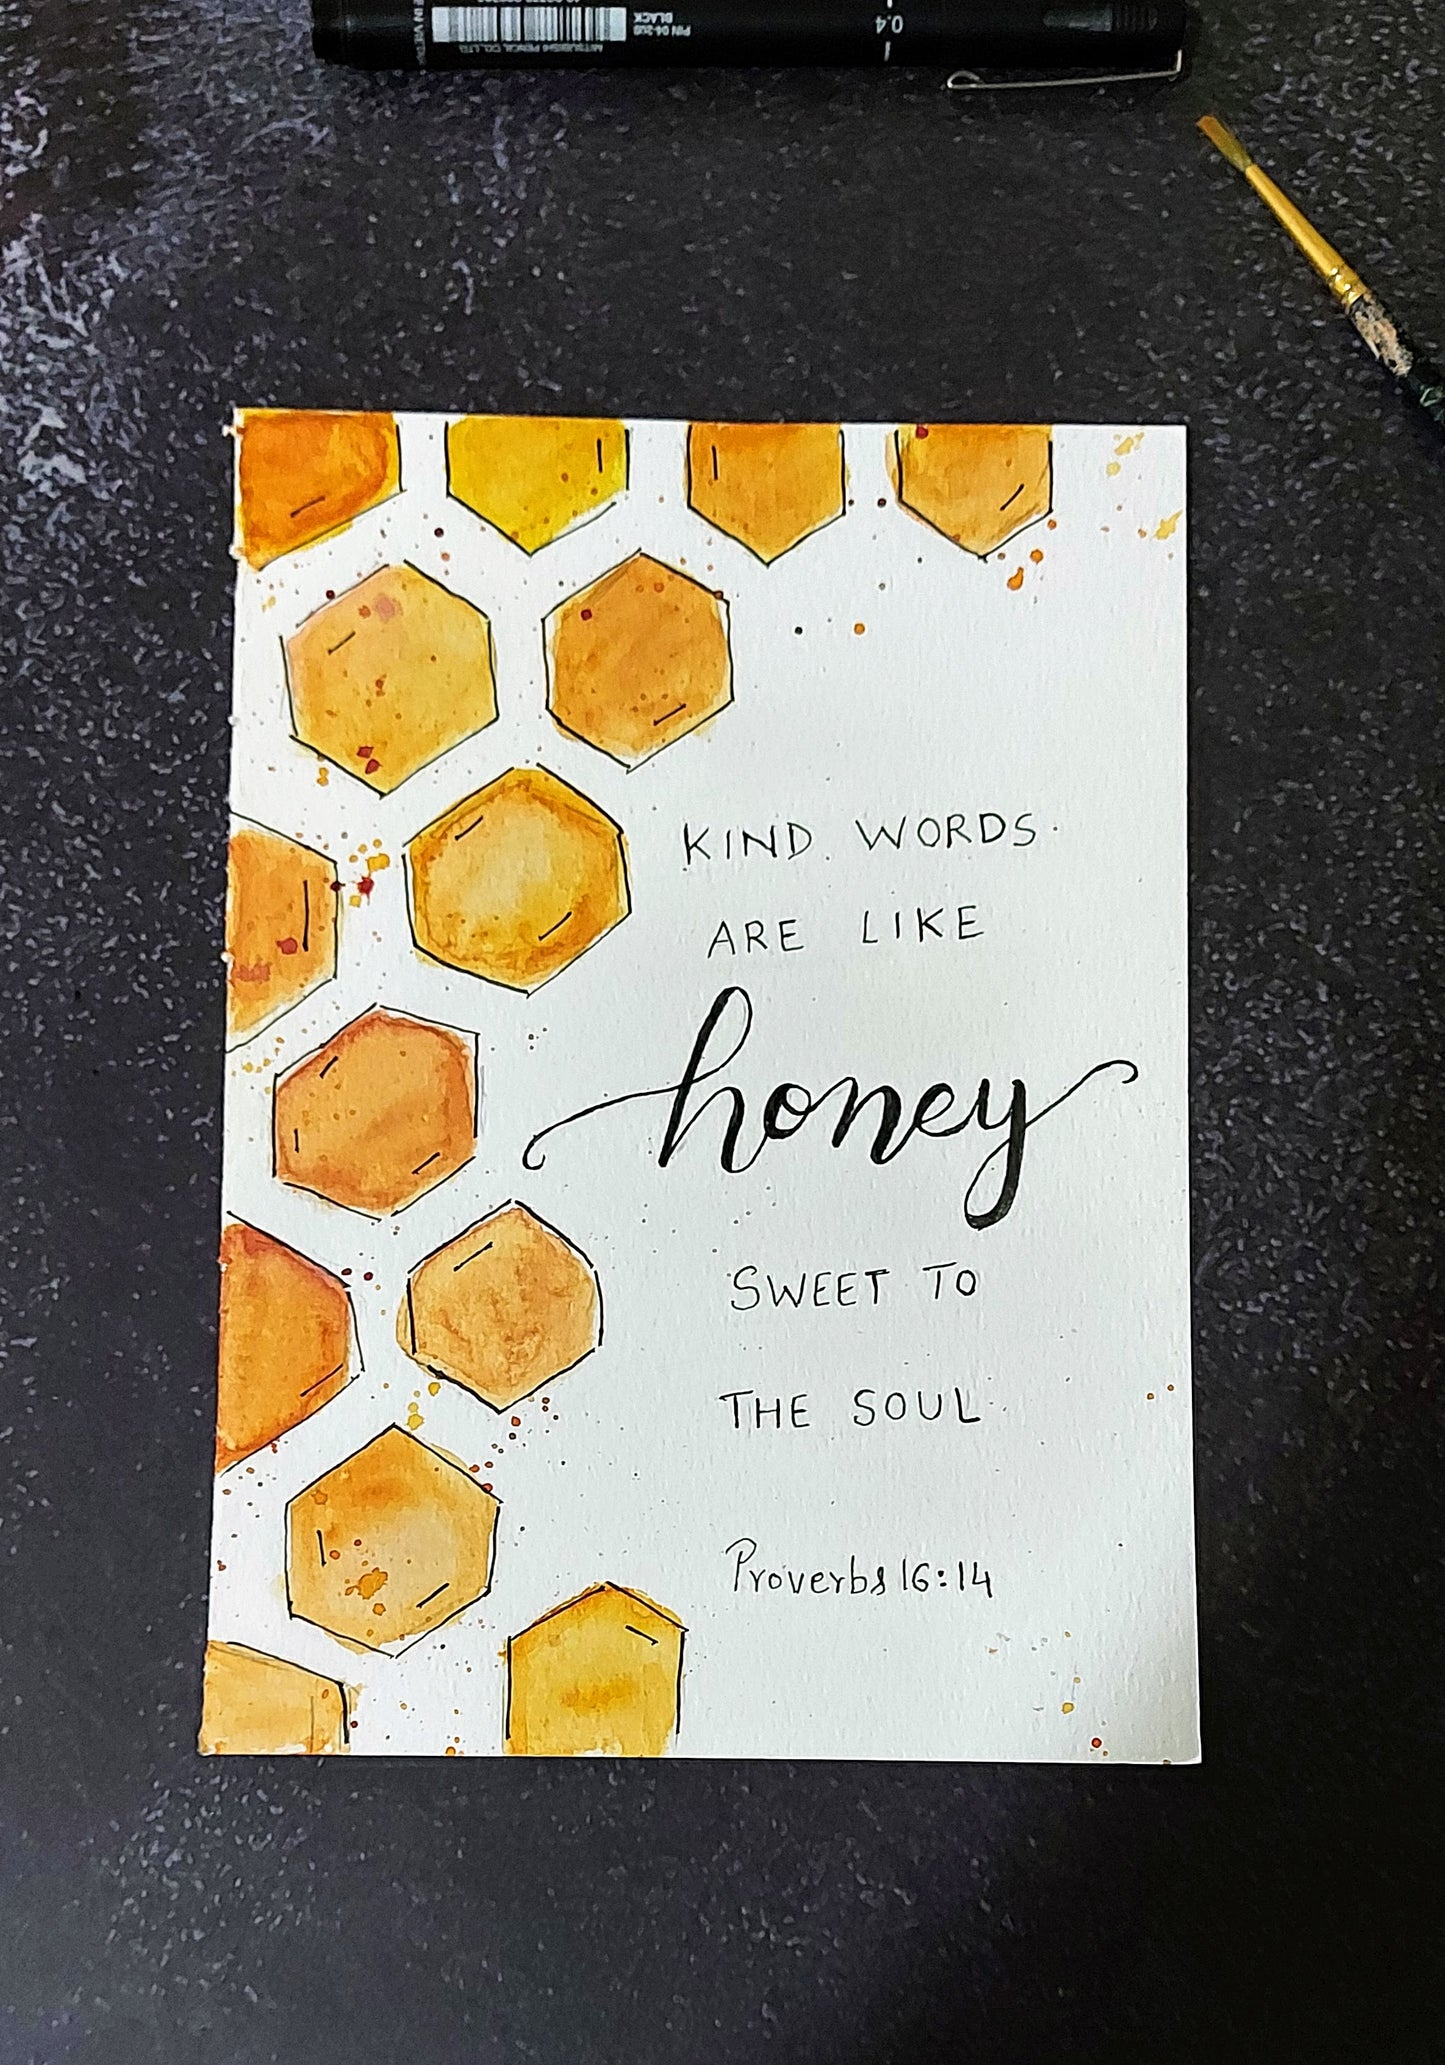 MADE IN VIETNAM
MITSUBISHI PENCIL CO.,LTD.
PIN 04-200
BLACK
0.4
KIND WORDS
ARE LIKE
honey
SWEET TO
THE SOUL
Proverbs 16:14